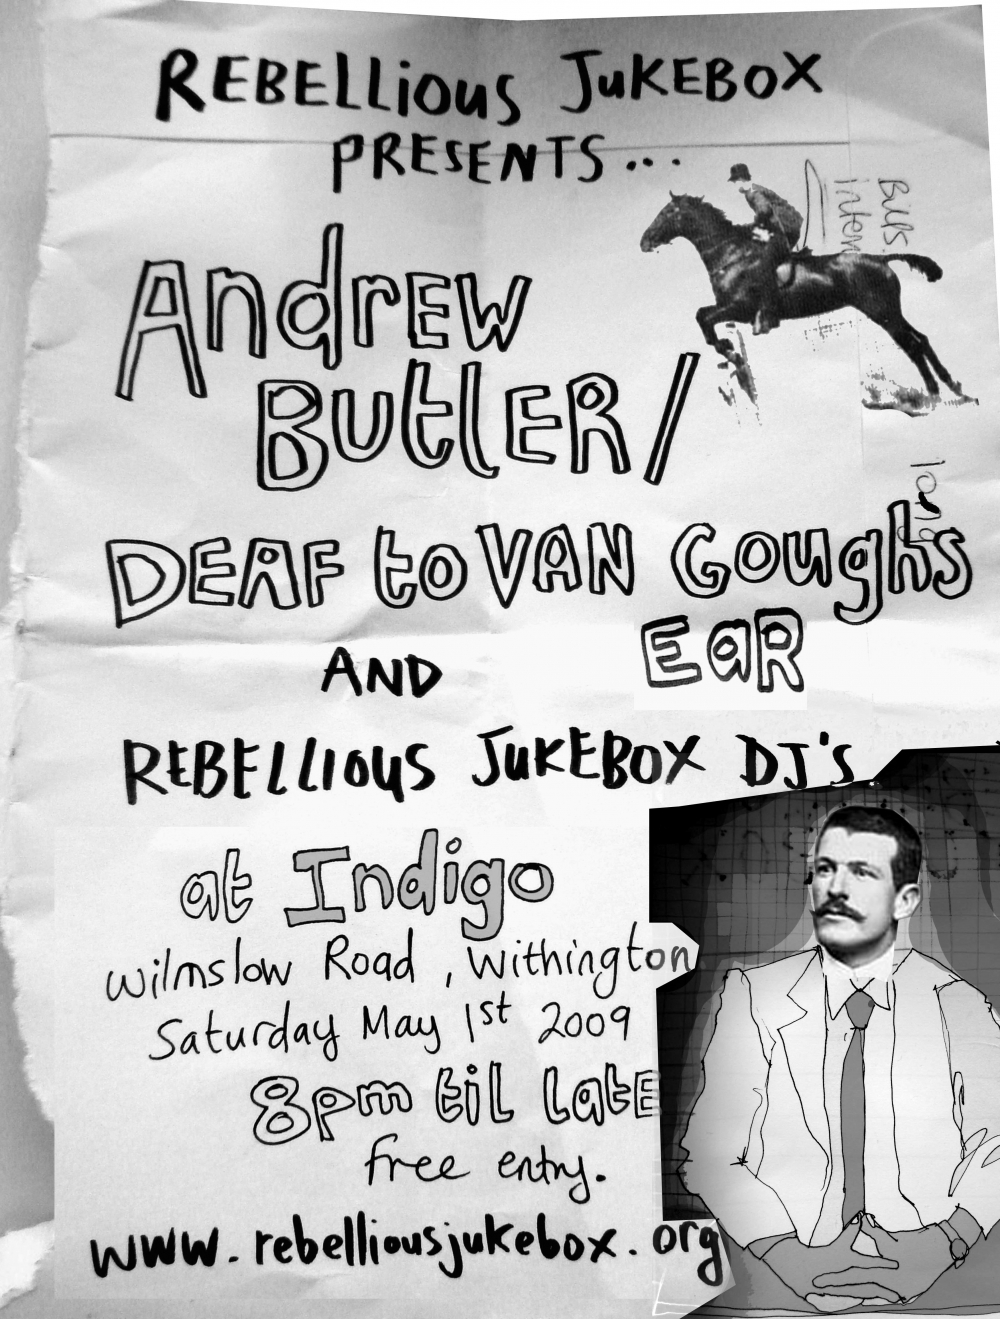 REBELLious JuKEBOX
PRESENTS...
AndrEW
ButlER/
DEAF to VAN Gough's
EaR
AND
REBELLIOUS JUKEBOX DJ's.
at Indigo
Wilmslow Road, Withington
Saturday May 1st 2009
8pm til LatE
free entry.
www.rebelliousjukebox.org
Bills.
inten
long